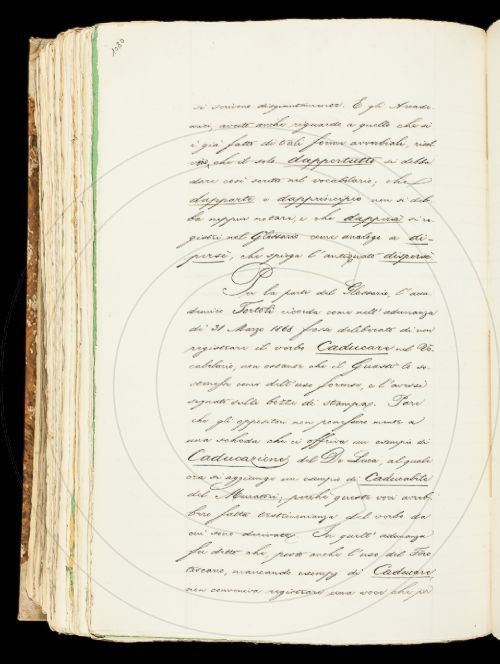 1080
si scrivono disgiuntamente. E gli Accade-
mici, avuto anche riguardo a quello che si
è già fatto di tali forme avverbiali, risol-
vono, che il solo dappertutto si debba
dare così scritto nel vocabolario; che
dapparte e dapprincipio non si deb-
ba neppur notare, e che dappersé si re-
gistri nel Glossario come analogo a di-
persé, che spiega l'antiquato dispersé.
Per la parte del Glossario, l'acca-
demico Tortoli ricorda come nell'adunanza
di 31 Marzo 1868 fosse deliberato di non
registrare il verbo Caducare nel Vo-
cabolario, non ostante che il Guasti lo so-
stenesse come dell'uso forense, e l'avesse
segnato sulle bozze di stampa. Pare
che gli oppositori non ponessero mente a
una scheda che ci offriva un esempio di
Caducazione, del De Luca, al quale
ora si aggiunge un esempio di Caducabile
del Muratori; perché queste voci avreb-
bero fatto testimonianza del verbo da
cui sono derivate. In quell'adunanza
fu detto che, posto anche l'uso del Foro
toscano, mancando esempj di Caducare,
non conveniva registrare una voce che può